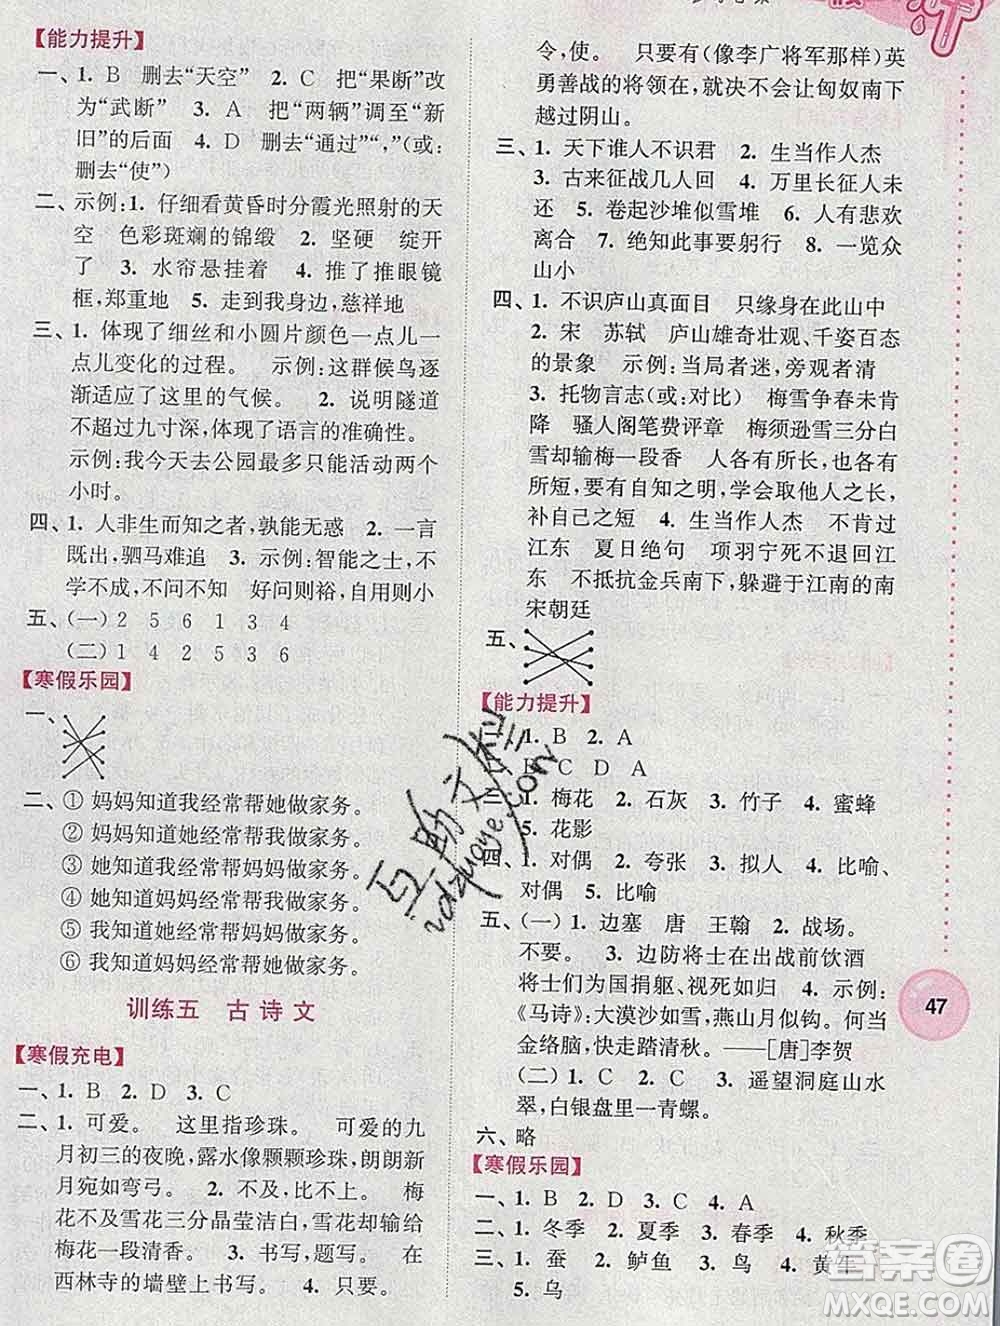 【能力提升】
一、1. B 删去“天空” 2. C 把“果断”改
为“武断” 3. A 把“两辆”调至“新
旧”的后面 4. D 删去“通过”“,”(或:
删去“使”)
二、示例:1. 仔细看黄昏时分霞光照射的天
空 色彩斑斓的锦缎 2. 坚硬 绽开
了 3. 水帘悬挂着 4. 推了推眼镜
框,郑重地 5. 走到我身边,慈祥地
三、1. 体现了细丝和小圆片颜色一点儿一
点儿变化的过程。 示例:这群候鸟逐
渐适应了这里的气候。 2. 说明隧道
不超过九寸深,体现了语言的准确性。
示例:我今天去公园最多只能活动两个
小时。
四、1. 人非生而知之者,孰能无惑 2. 一言
既出,驷马难追 3. 示例:智能之士,不
学不成,不问不知 好问则裕,自用则小
五、(一) 2 5 6 1 3 4
(二) 1 4 2 5 3 6
【寒假乐园】
一、
二、① 妈妈知道我经常帮她做家务。
② 妈妈知道她经常帮我做家务。
③ 她知道我经常帮妈妈做家务。
④ 她知道妈妈经常帮我做家务。
⑤ 我知道她经常帮妈妈做家务。
⑥ 我知道妈妈经常帮她做家务。
训练五 古诗文
【寒假充电】
一、1. B 2. D 3. C
二、1. 可爱。 这里指珍珠。 可爱的九
月初三的夜晚,露水像颗颗珍珠,朗朗新
月宛如弯弓。 2. 不及,比不上。 梅
花不及雪花三分晶莹洁白,雪花却输给
梅花一段清香。 3. 书写,题写。 在
西林寺的墙壁上书写。 4. 只要。
令,使。 只要有(像李广将军那样)英
勇善战的将领在,就决不会让匈奴南下
越过阴山。
三、1. 天下谁人不识君 2. 生当作人杰
3. 古来征战几人回 4. 万里长征人未
还 5. 卷起沙堆似雪堆 6. 人有悲欢
离合 7. 绝知此事要躬行 8. 一览众
山小
四、1. 不识庐山真面目 只缘身在此山中
2. 宋 苏轼 庐山雄奇壮观、千姿百态
的景象 示例:当局者迷,旁观者清
3. 托物言志(或:对比) 梅雪争春未肯
降 骚人阁笔费评章 梅须逊雪三分白
雪却输梅一段香 人各有所长,也各有
所短,要有自知之明,学会取他人之长,
补自己之短 4. 生当作人杰 不肯过
江东 夏日绝句 项羽宁死不退回江
东 不抵抗金兵南下,躲避于江南的南
宋朝廷
五、
【能力提升】
1. B 2. A
B C D A
三、1. 梅花 2. 石灰 3. 竹子 4. 蜜蜂
5. 花影
四、1. 对偶 2. 夸张 3. 拟人 4. 比喻、
对偶 5. 比喻
五、(一) 1. 边塞 唐 王翰 2. 战场。
不要。 3. 边防将士在出战前饮酒
将士们为国捐躯、视死如归 4. 示例:
《马诗》:大漠沙如雪,燕山月似钩。何当
金络脑,快走踏清秋。——[唐]李贺
(二) 1. C 2. A 3. 遥望洞庭山水
翠,白银盘里一青螺。
六、略
【寒假乐园】
一、1. B 2. D 3. C 4. A
二、1. 冬季 2. 夏季 3. 春季 4. 秋季
三、1. 蚕 2. 鲈鱼 3. 马 4. 黄牛
5. 鸟
47
互助文库
vdzuoye.com
答案圈
MXQE.COM